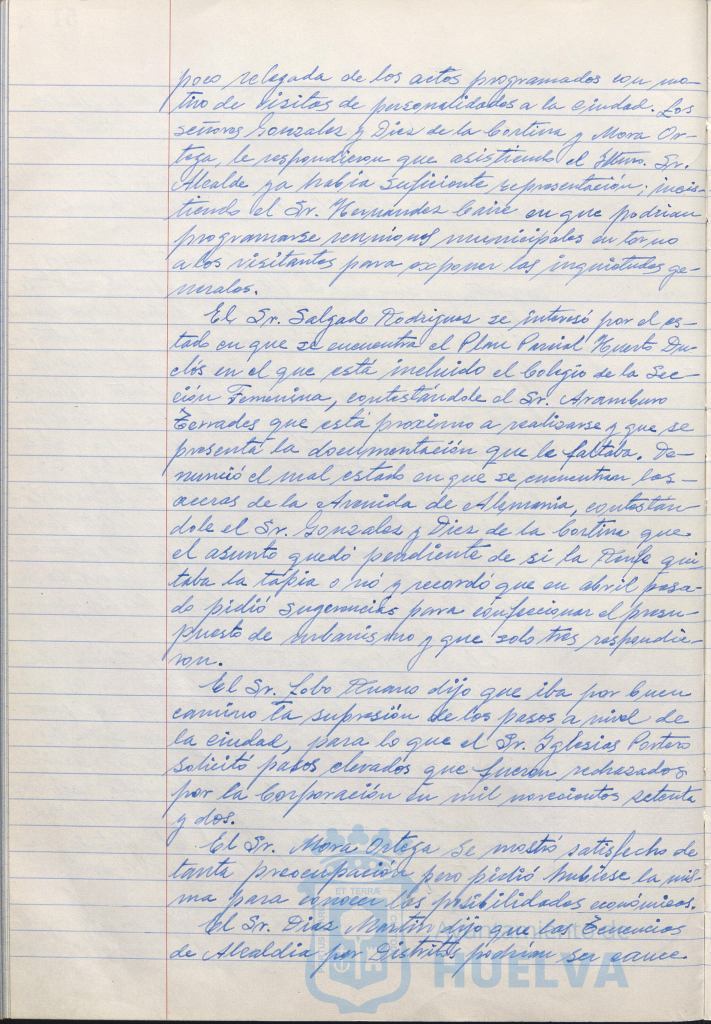 poco relegada de los actos programados con mo-
tivo de visitas de personalidades a la ciudad. Los
señores Gonzalez y Diez de la Cortina y Mora Or-
tega, le respondieron que asistiendo el Iltmo. Sr.
Alcalde ya había suficiente representación; insis-
tiendo el Sr. Hernandez Caire en que podrian
programarse reuniones municipales en torno
a los visitantes para exponer las inquietudes ge-
nerales.
El Sr. Salgado Rodriguez se interesó por el es-
tado en que se encuentra el Plan Parcial Huerto Du-
clós en el que está incluido el Colegio de la Sec-
ción Femenina, contestándole el Sr. Aramburo
Terrades que está proximo a realizarse y que se
presentá la documentación que le faltaba. De-
nunció el mal estado en que se encuentran las
aceras de la Avenida de Alemania, contestan-
dole el Sr. Gonzalez y Diez de la Cortina que
el asunto quedó pendiente de si la Renfe qui-
taba la tapia o nó y recordó que en abril pasa-
do pidió sugerencias para confeccionar el presu-
puesto de urbanismo y que solo tres respondie-
ron.
El Sr. Lobo Ruano dijo que iba por buen
camino la supresión de los pasos a nivel de
la ciudad, para lo que el Sr. Iglesias Portero
solicitó pasos elevados que fueron rechazados
por la Corporación en mil novecientos setenta
y dos.
El Sr. Mora Ortega se mostró satisfecho de
tanta preocupación pero pidió hubiese la mis-
ma para conocer las posibilidades económicas.
El Sr. Diaz Martin dijo que las Tenencias
de Alcaldia por Distritos podrían ser cauce
ET TERRÆ
Ayuntamiento de
HUELVA